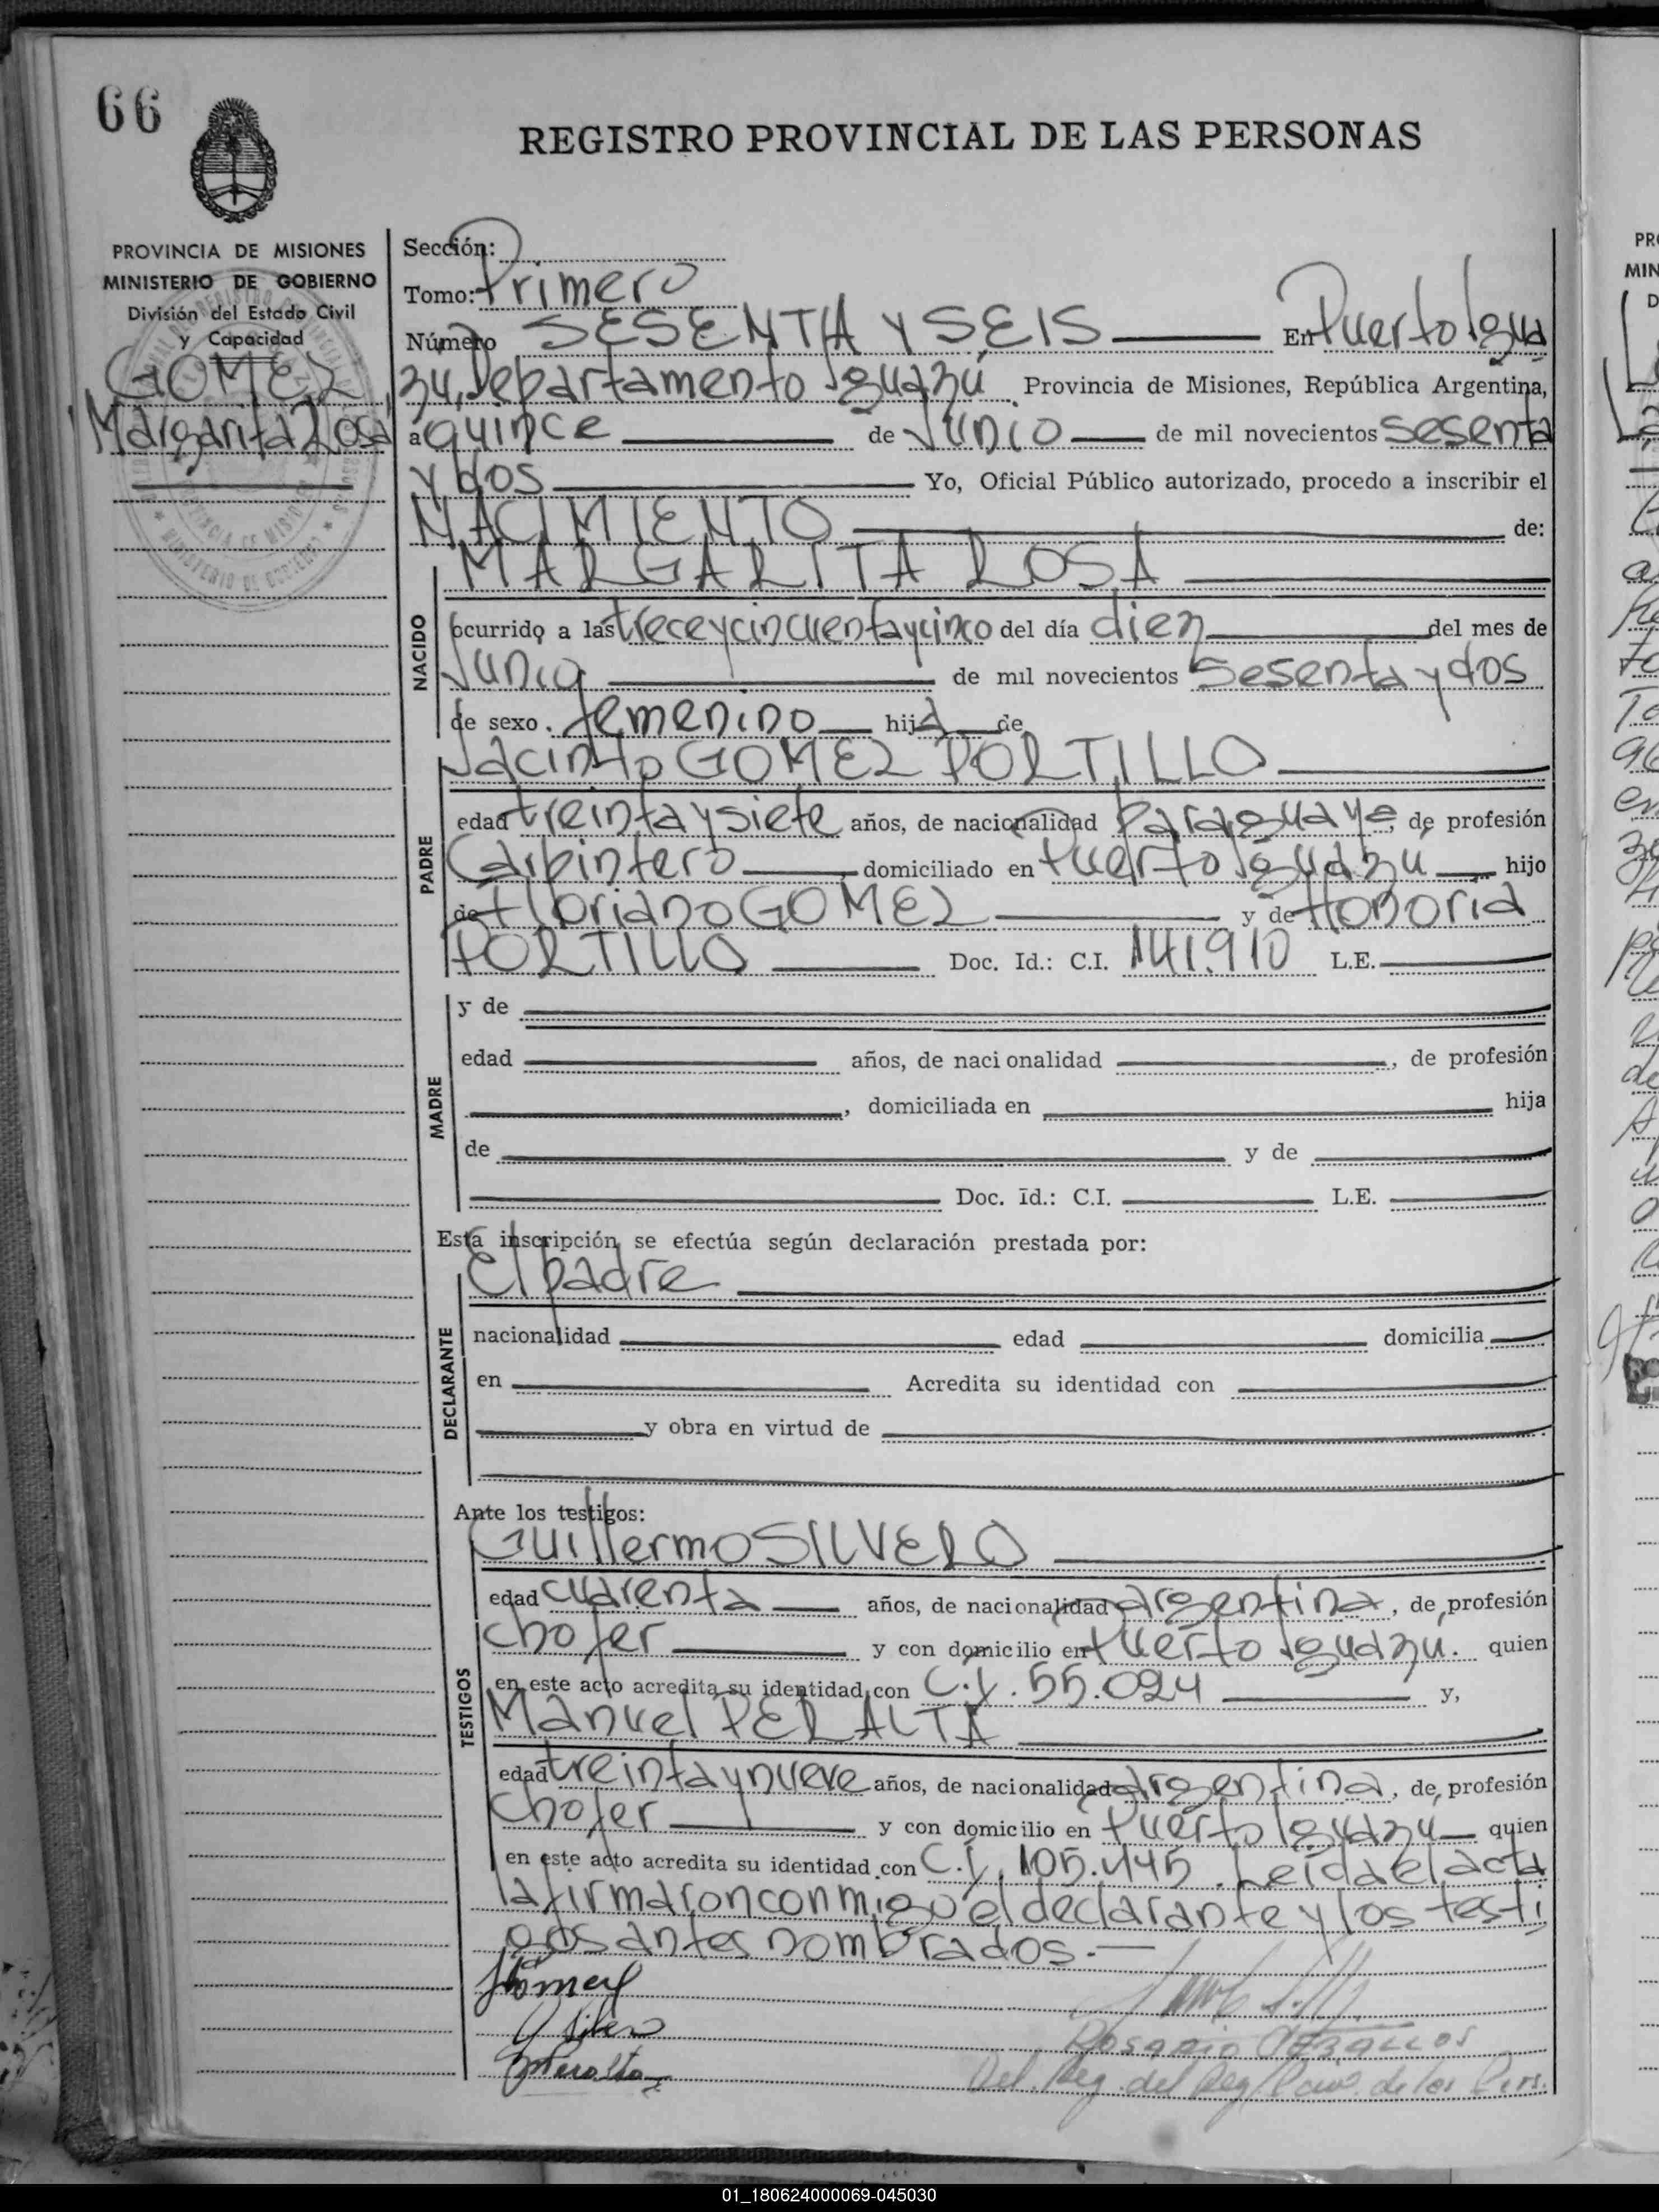 66
REGISTRO PROVINCIAL DE LAS PERSONAS
PROVINCIA DE MISIONES
MINISTERIO DE GOBIERNO
División del Estado Civil
y Capacidad
GOMEZ
Margarita Rosa
Sección:
Tomo: Primero
Número SESENTA Y SEIS En Puerto Igua
zú, Departamento Iguazú Provincia de Misiones, República Argentina,
a quince de Junio de mil novecientos sesenta
y dos Yo, Oficial Público autorizado, procedo a inscribir el
NACIMIENTO de:
MARGARITA ROSA
NACIDO
ocurrido a las trece y cincuenta y cinco del día diez del mes de
Junio de mil novecientos sesenta y dos
de sexo femenino hija de
PADRE
Jacinto GOMEZ PORTILLO
edad treinta y siete años, de nacionalidad Paraguaya, de profesión
Carpintero domiciliado en Puerto Iguazú hijo
de Floriano GOMEZ y de Honoria
PORTILLO Doc. Id.: C.I. 141.910 L.E.
MADRE
y de
edad años, de nacionalidad , de profesión
, domiciliada en hija
de y de
Doc. Id.: C.I. L.E.
Esta inscripción se efectúa según declaración prestada por:
DECLARANTE
El padre
nacionalidad edad domicilia
en Acredita su identidad con
y obra en virtud de
Ante los testigos:
TESTIGOS
Guillermo SILVERO
edad cuarenta años, de nacionalidad argentina, de profesión
chofer y con domicilio en Puerto Iguazu. quien
en este acto acredita su identidad con C.I. 55.024 y,
Manuel PERALTA
edad treinta y nueve años, de nacionalidad argentina, de profesión
chofer y con domicilio en Puerto Iguazú quien
en este acto acredita su identidad con C.I. 105.445. Leída el acta
la firmaron conmigo el declarante y los testi
gos antes nombrados.—
Peralta
Rosario
Del. Reg. del Reg. Prov. de las Pers.
01_180624000069-045030